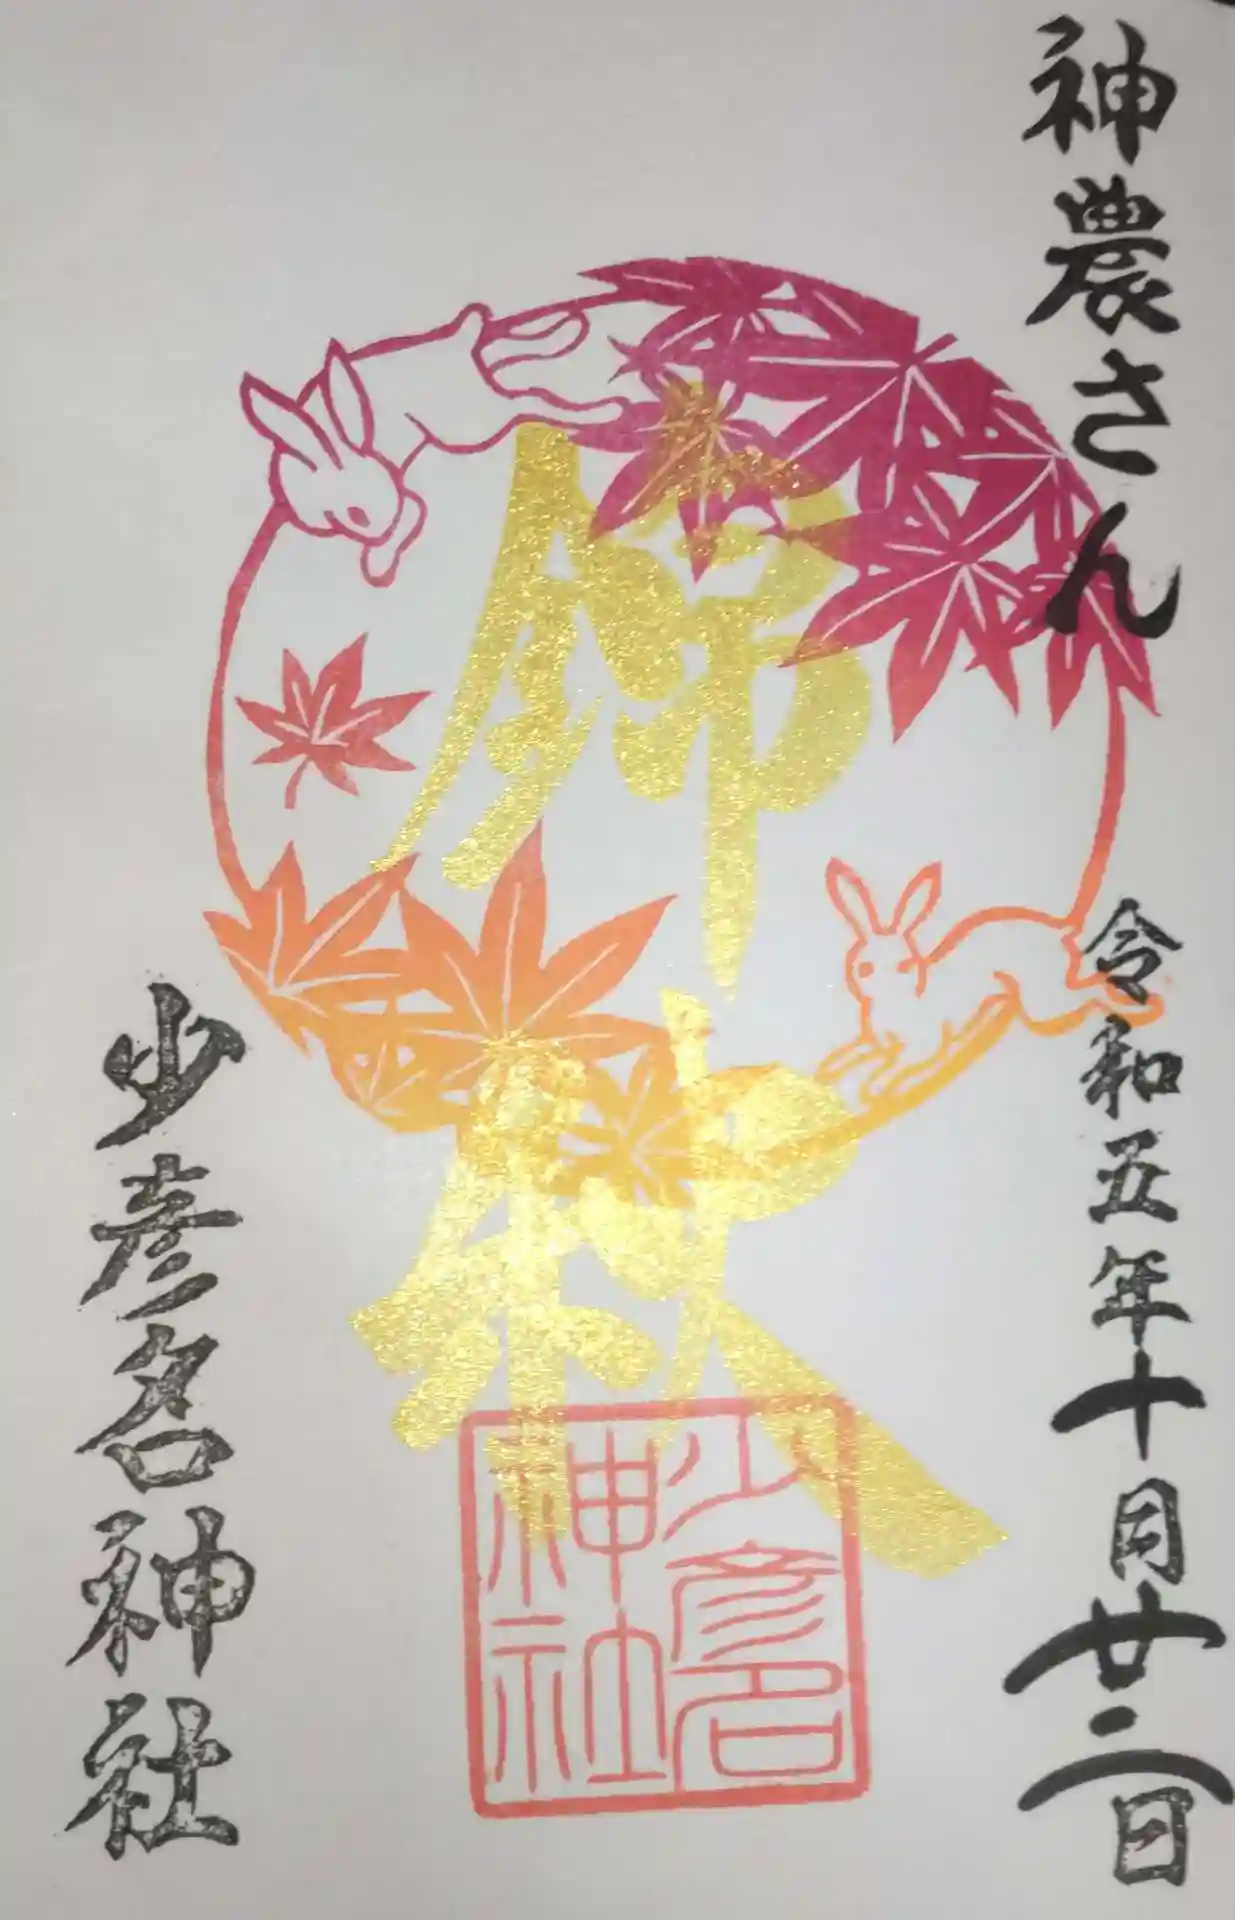 神農さん
令和五年十月廿二日
錦秋
少彦名神社
少彦名神社